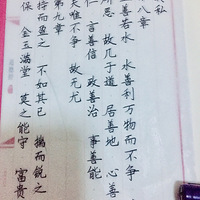 私
八章
善若水 水善利万物而不争
所恶 故几于道 居善地 心善
仁 言善信 政善治 事善能
夫唯不争 故无尤
第九章
持而盈之 不如其已 揣而锐之
保 金玉满堂 莫之能守 富贵